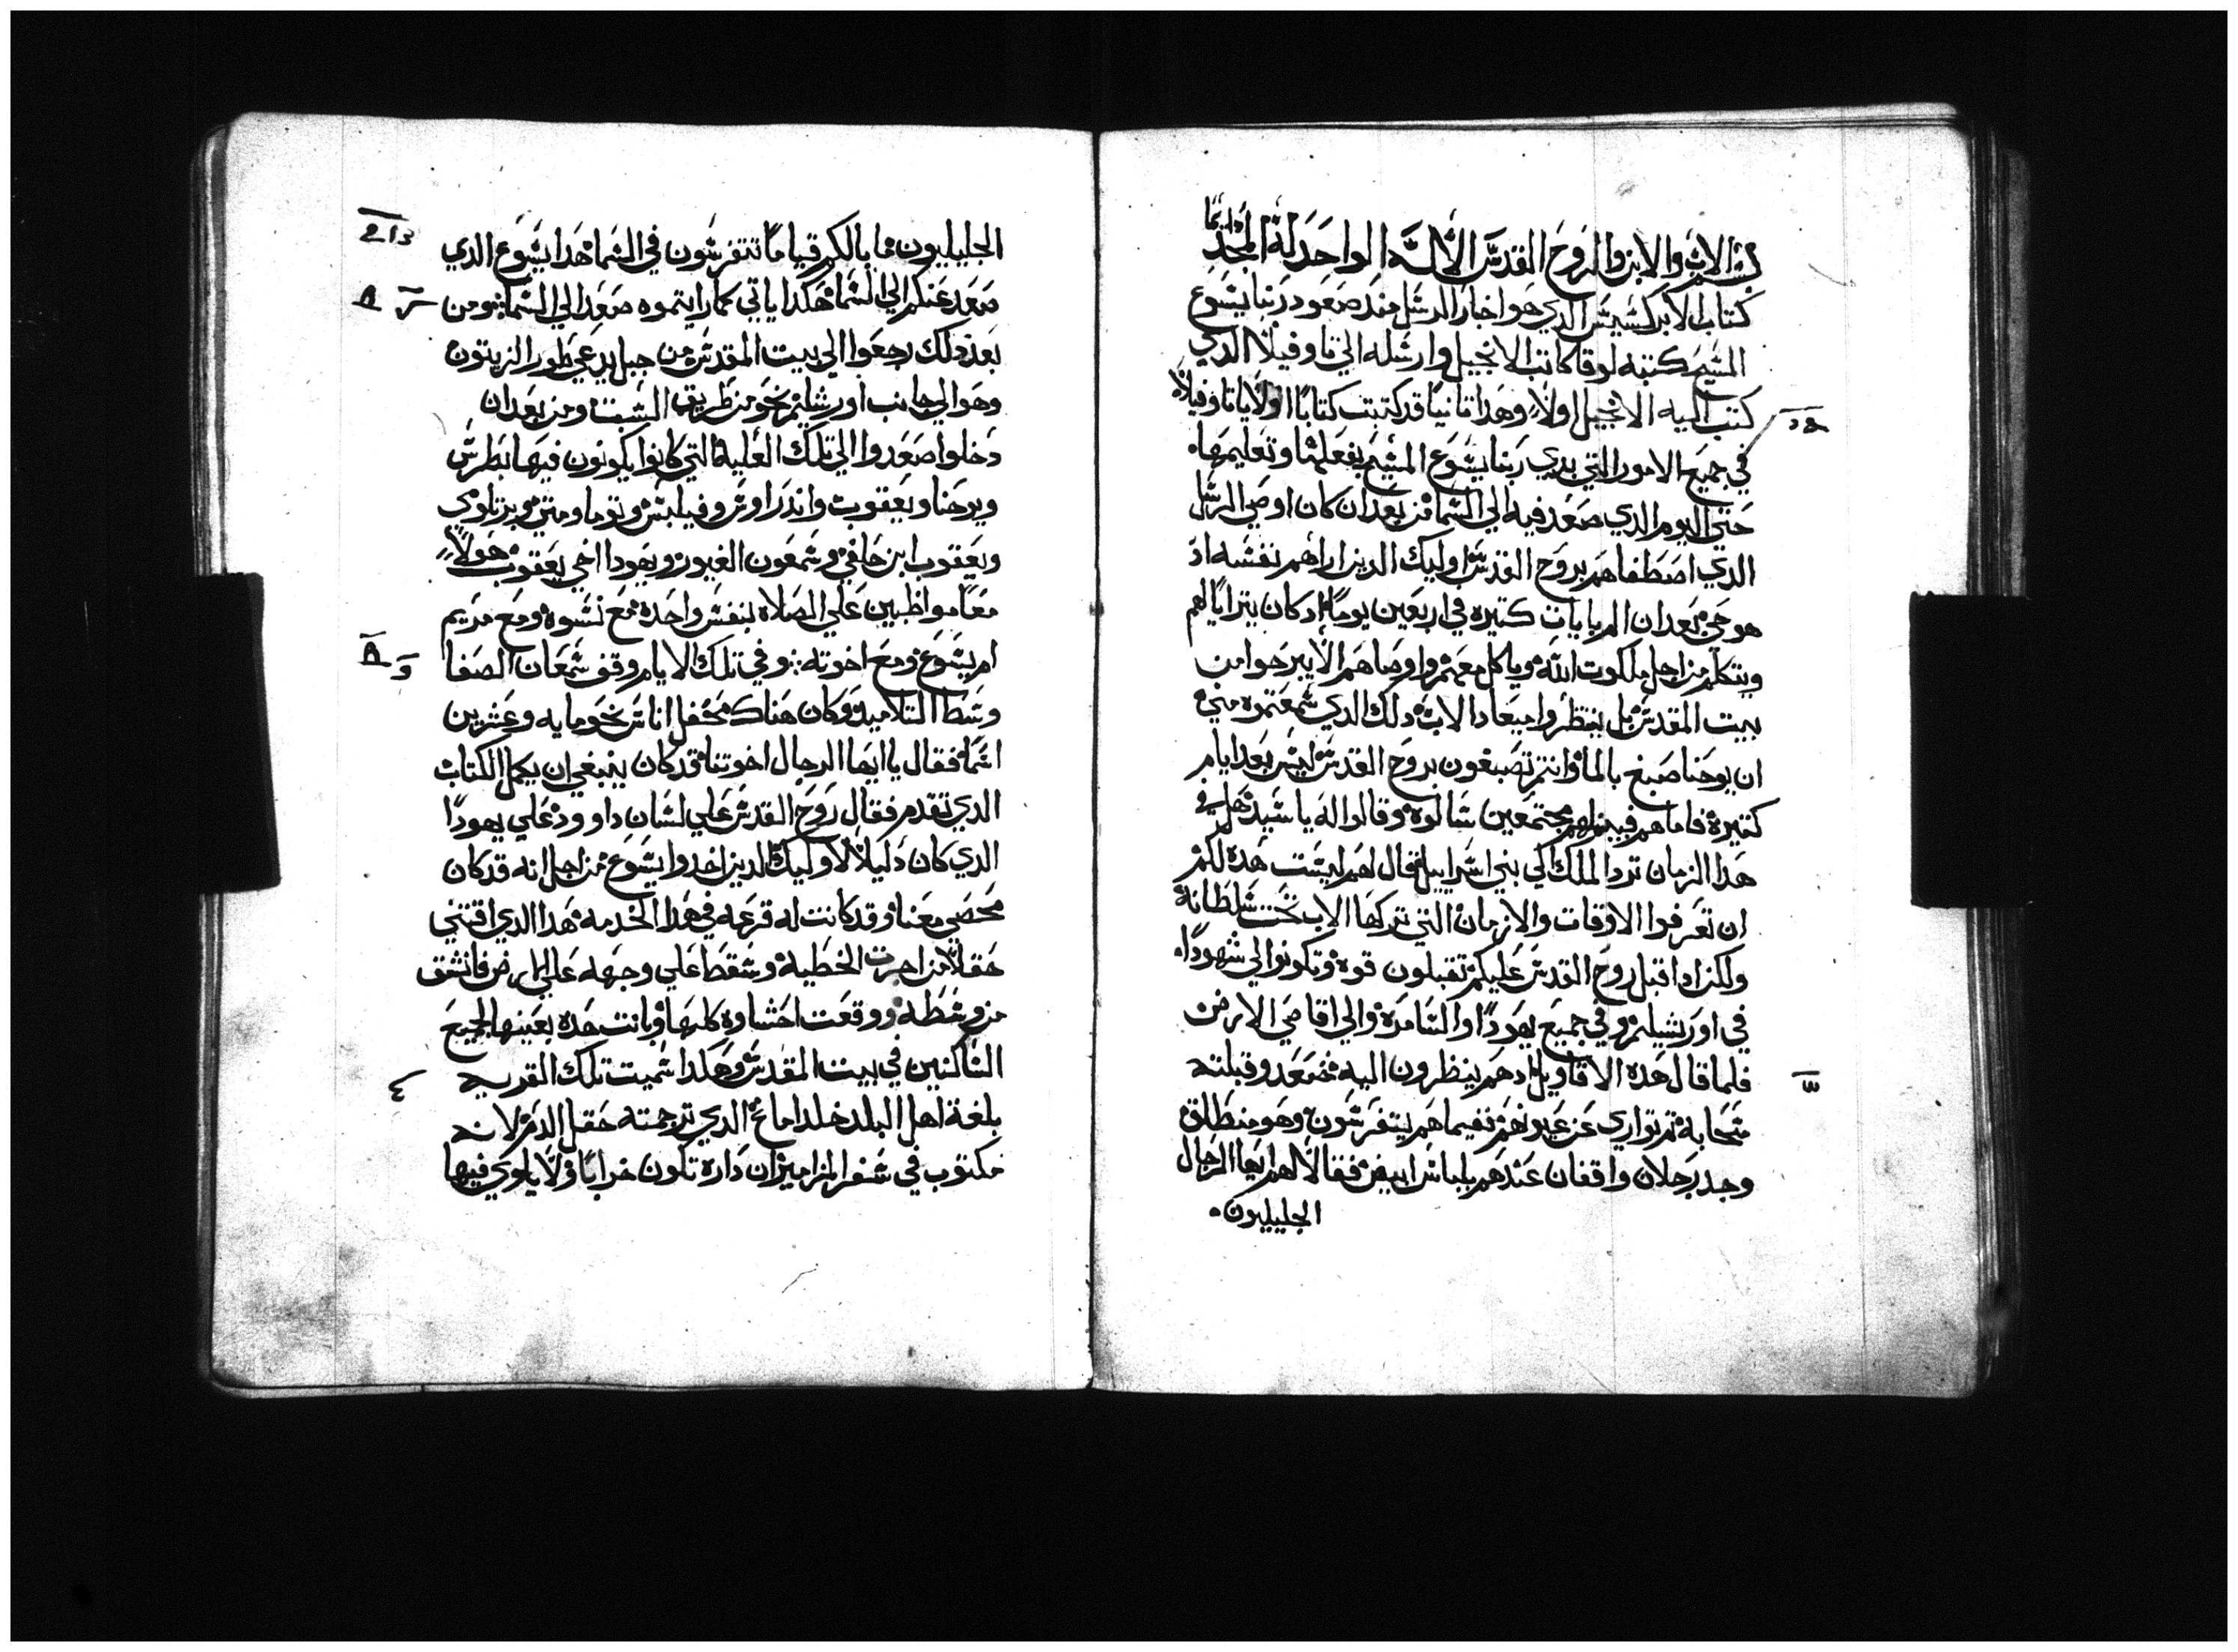 بسم الاب والابن والروح القدس الالاه الواحد له المجد دايما
كتاب الابركسيس الدي هو اخبار الرسل مند صعود ربنا يسوع
المسيح كتبه لوقا كاتب الانجيل وارسله الي تاوفيلا الدي
كتب اليه الانجيل اولا وهدا تانيا قد كتبت كتابا اولا يا تاوفيلا
في جميع الامور التي بدي ربنا يسوع المسيح بفعلها وتعليمها
حتي اليوم الدي صعد فيه الي السما من بعد ان كان اوصي الرسل
الدي اصطفاهم بروح القدس اوليك الدين اراهم نفسه اد
هو حي بعد ان الم بايات كتيره في اربعين يوما اد كان يترايا لهم
ويتكلم من اجل ملكوت الله وياكل معهم واوصاهم الا يبرحوا من
بيت المقدس بل ينتظروا ميعاد الاب دلك الدي سمعتموه مني
ان يوحنا صبغ بالما وانتم تصبغون بروح القدس ليس بعد ايام
كتيرة فاما هم فبينما هم مجتمعين سالوه وقالوا له يا سيد هل في
هدا الزمان ترد الملك الي بني اسراييل قال لهم ليست هده لكم
ان تعرفوا الاوقات والازمان التي تركها الاب تحت سلطانه
ولكن ادا قبل روح القدس عليكم تقبلون قوه وتكونوا لي شهودا
في اورشيلم وفي جميع يهودا والسامرة والي اقاصي الارض
فلما قال هده الاقاويل ادهم ينظرون اليه صعد وقبلته
سحابة تم تواري عن عيونهم فيما هم يتفرسون وهو منطلق
وجد رجلان واقفان عندهم بلباس ابيض فقالا لهم ايها الرجال
الجليليون
الجليليون ما بالكم قياما تتفرسون في السما هدا يسوع الدي
صعد عنكم الي السما هكدا ياتي كما رايتموه صعد الي السما ومن
بعد دلك رجعوا الي بيت المقدس من جبل يدعي طور الزيتون
وهو الي جانب اورشليم نحو من طريق السبت ومن بعد ان
دخلوا صعدوا الي تلك العلية التي كانوا يكونون فيها بطرس
ويوحنا ويعقوب واندراوس وفيلبس وتوما ومتي وبرتلوي
ويعقوب ابن حلفي وسمعون الغيور ويهودا اخي يعقوب هولا
معا مواظبين علي الصلاه بنفس واحدة مع نسوة ومع مريم
ام يسوع ومع اخوته وفي تلك الايام وقف شمعان الصفا
وسط التلاميد وكان هناك محفل اناس نحو مايه وعشرين
اسما فقال يا ايها الرجال اخوتنا قد كان ينبغي ان يكمل الكتاب
الدي تقدم فقال روح القدس علي لسان داوود علي يهودا
الدي كان دليلا لاوليك الدين اخدوا يسوع من اجل انه قد كان
محصي معنا وقد كانت له قرعه في هدا الخدمه هدا الدي اقتني
حقلا من اجرت الخطية وسقط علي وجهه علي الارض فانشق
من وسطه ووقعت احشاوه كلها وبانت هده بعينها لجميع
الساكنين في بيت المقدس وهكدا سميت تلك القريه
بلغة اهل البلد خلداماخ الدي ترجمته حقل الدم لانه
مكتوب في سفر المزامير ان داره تكون خرابا ولا ياوي فيها